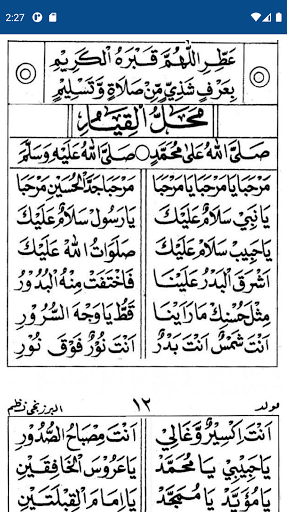 2:27
عَطِّرِ اللّٰهُمَّ قَبْرَهُ الْكَرِيْمِ
بِعَرْفٍ شَذِيٍّ مِّنْ صَلَاةٍ وَّتَسْلِيْمٍ
مَحَلُّ الْقِيَامِ
صَلَّى اللّٰهُ عَلٰى مُحَمَّدٍ ○ صَلَّى اللّٰهُ عَلَيْهِ وَسَلَّمَ
مَرْحَبًا يَا مَرْحَبًا يَا مَرْحَبَا مَرْحَبًا جَدَّ الْحُسَيْنِ مَرْحَبَا
يَا نَبِيْ سَلَامٌ عَلَيْكَ يَا رَسُوْلْ سَلَامٌ عَلَيْكَ
يَا حَبِيْبْ سَلَامٌ عَلَيْكَ صَلَوَاتُ اللّٰهْ عَلَيْكَ
اَشْرَقَ الْبَدْرُ عَلَيْنَا فَاخْتَفَتْ مِنْهُ الْبُدُوْرُ
مِثْلَ حُسْنِكْ مَا رَاَيْنَا قَطُّ يَا وَجْهَ السُّرُوْرِ
اَنْتَ شَمْسٌ اَنْتَ بَدْرٌ اَنْتَ نُوْرٌ فَوْقَ نُوْرٍ
مولد ١٢ البرزنجى نظم
اَنْتَ اِكْسِيْرٌ وَّغَالِيْ اَنْتَ مِصْبَاحُ الصُّدُوْرِ
يَا حَبِيْبِيْ يَا مُحَمَّدْ يَا عَرُوْسَ الْخَافِقَيْنِ
يَا مُؤَيَّدْ يَا مُمَجَّدْ يَا اِمَامَ الْقِبْلَتَيْنِ